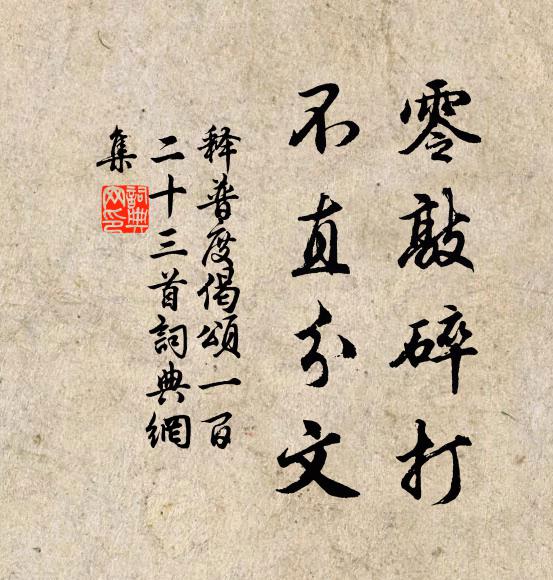 零敲碎打
不直分文
释普度偈頌一百
二十三首詞典網
集
詞典
网印